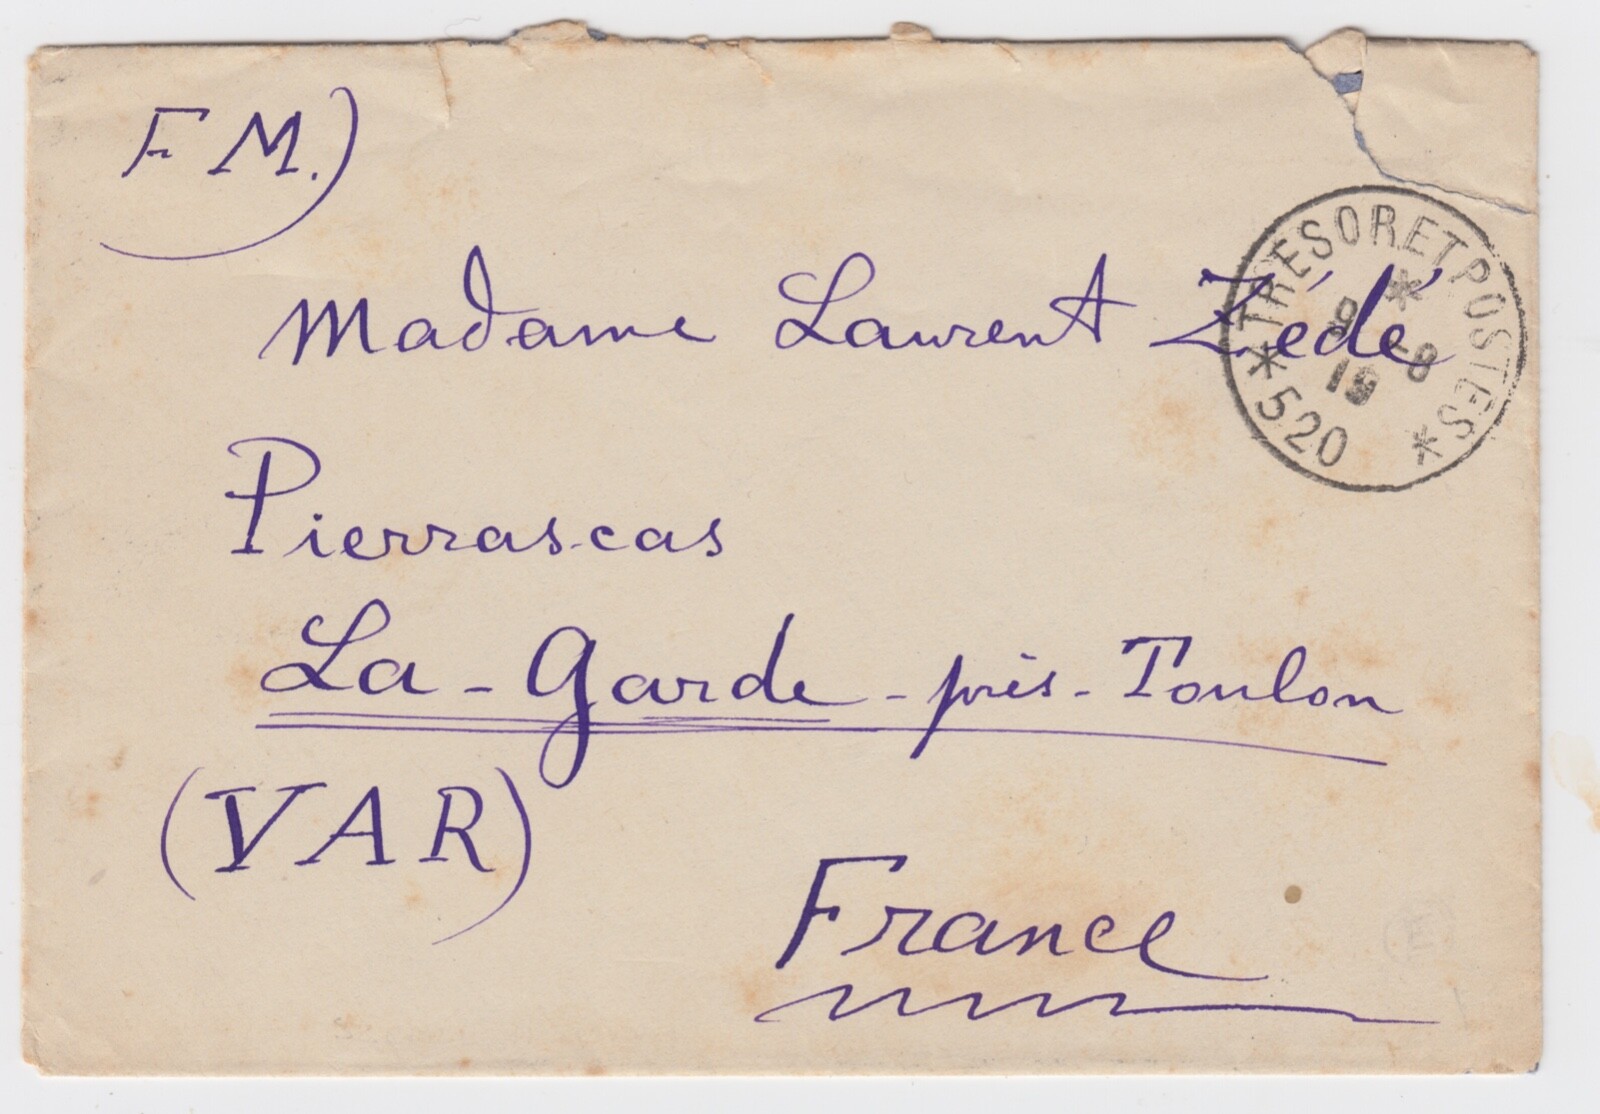 F M.)
Madame Laurent Zédé
Pierrascas
La-Garde-près-Toulon
(VAR)
France
*TRESOR ET POSTES*
*
9 -8
19
520
E